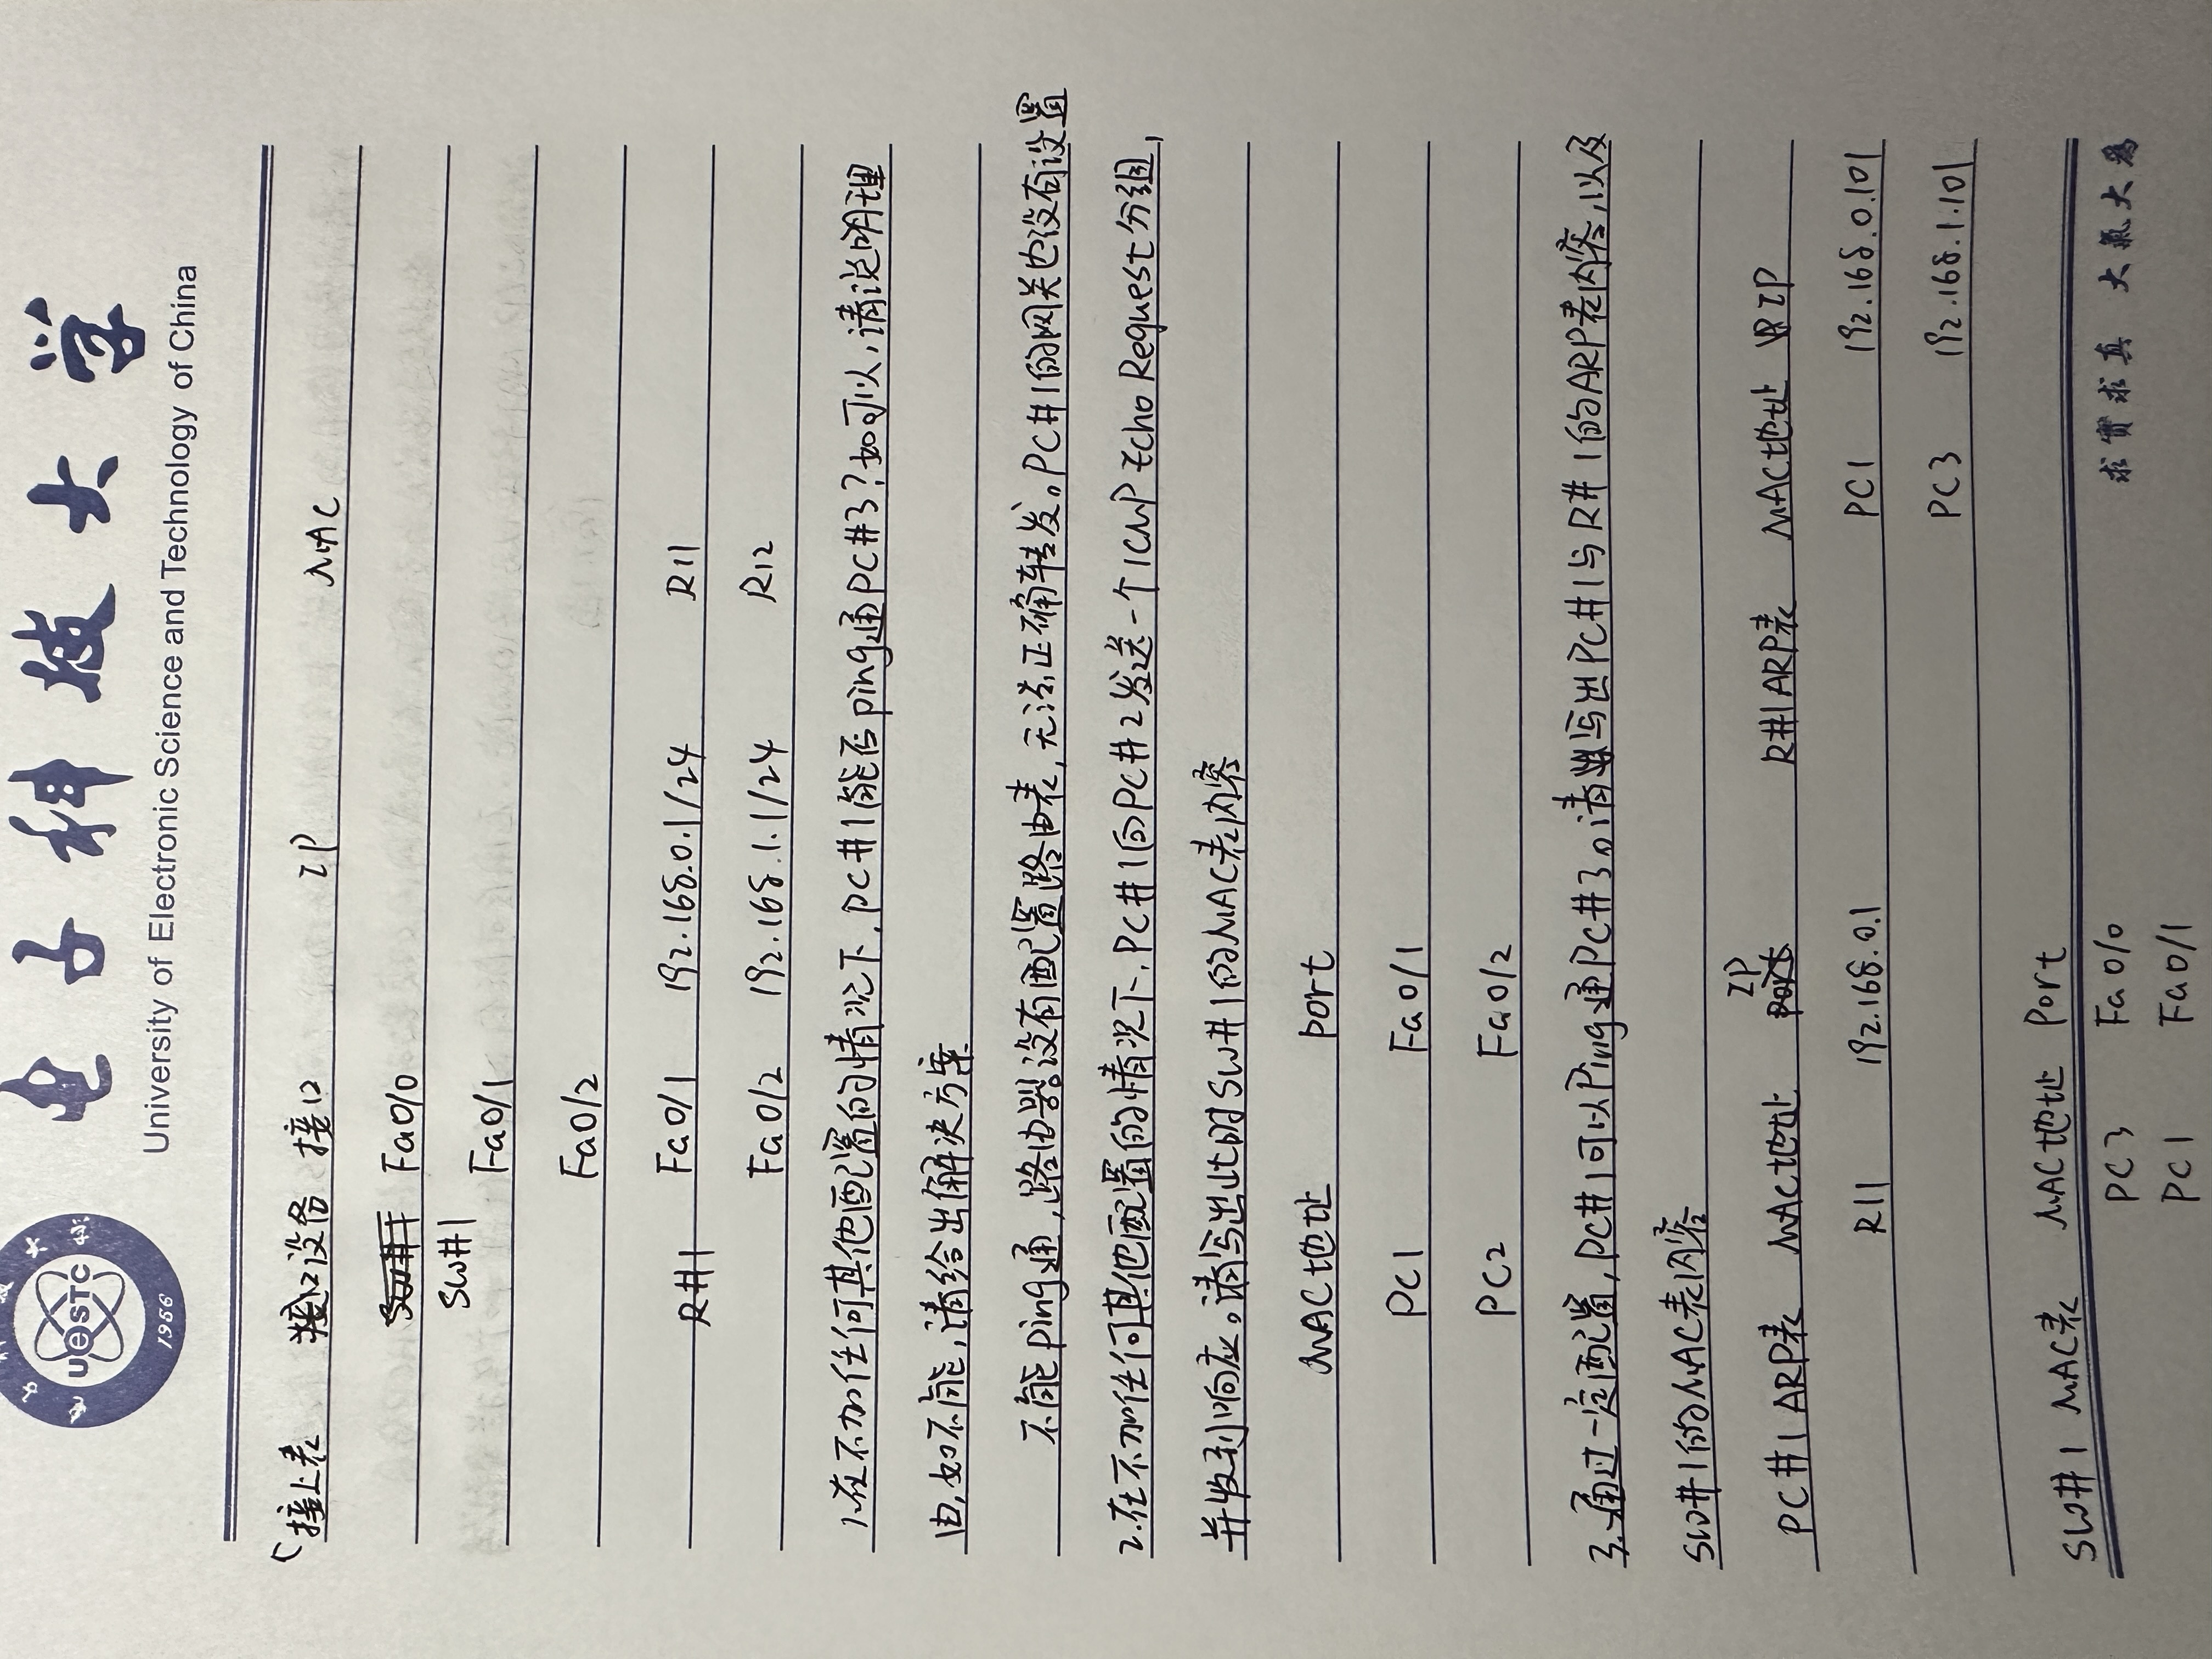 UESTC
1956
电子科技大学
University of Electronic Science and Technology of China
(接上表 设备 接口 IP MAC
Fa0/0
SW#1
Fa0/1
Fa0/2
R#1 Fa0/1 192.168.0.1/24 R11
Fa0/2 192.168.1.1/24 R12
1.在不加任何其他配置的情况下,PC#1能否ping通PC#3?如可以,请说明理
由,如不能,请给出解决方案
不能ping通,路由器没有配置路由表,无法正确转发。PC#1的网关也没有设置
2.在不加任何其他配置的情况下,PC#1向PC#2发送一个ICMP Echo Request分组,
并收到响应。请写出此时SW#1的MAC表内容
MAC地址 port
PC1 Fa0/1
PC2 Fa0/2
3.通过一定配置,PC#1可以Ping通PC#3。请写出PC#1与R#1的ARP表内容,以及
SW#1的MAC表内容
PC#1 ARP表 MAC地址 IP R#1ARP表 MAC地址 IP
R11 192.168.0.1 PC1 192.168.0.101
PC3 192.168.1.101
SW#1 MAC表 MAC地址 Port
PC3 Fa0/0
求實求真 大氣大為
PC1 Fa0/1